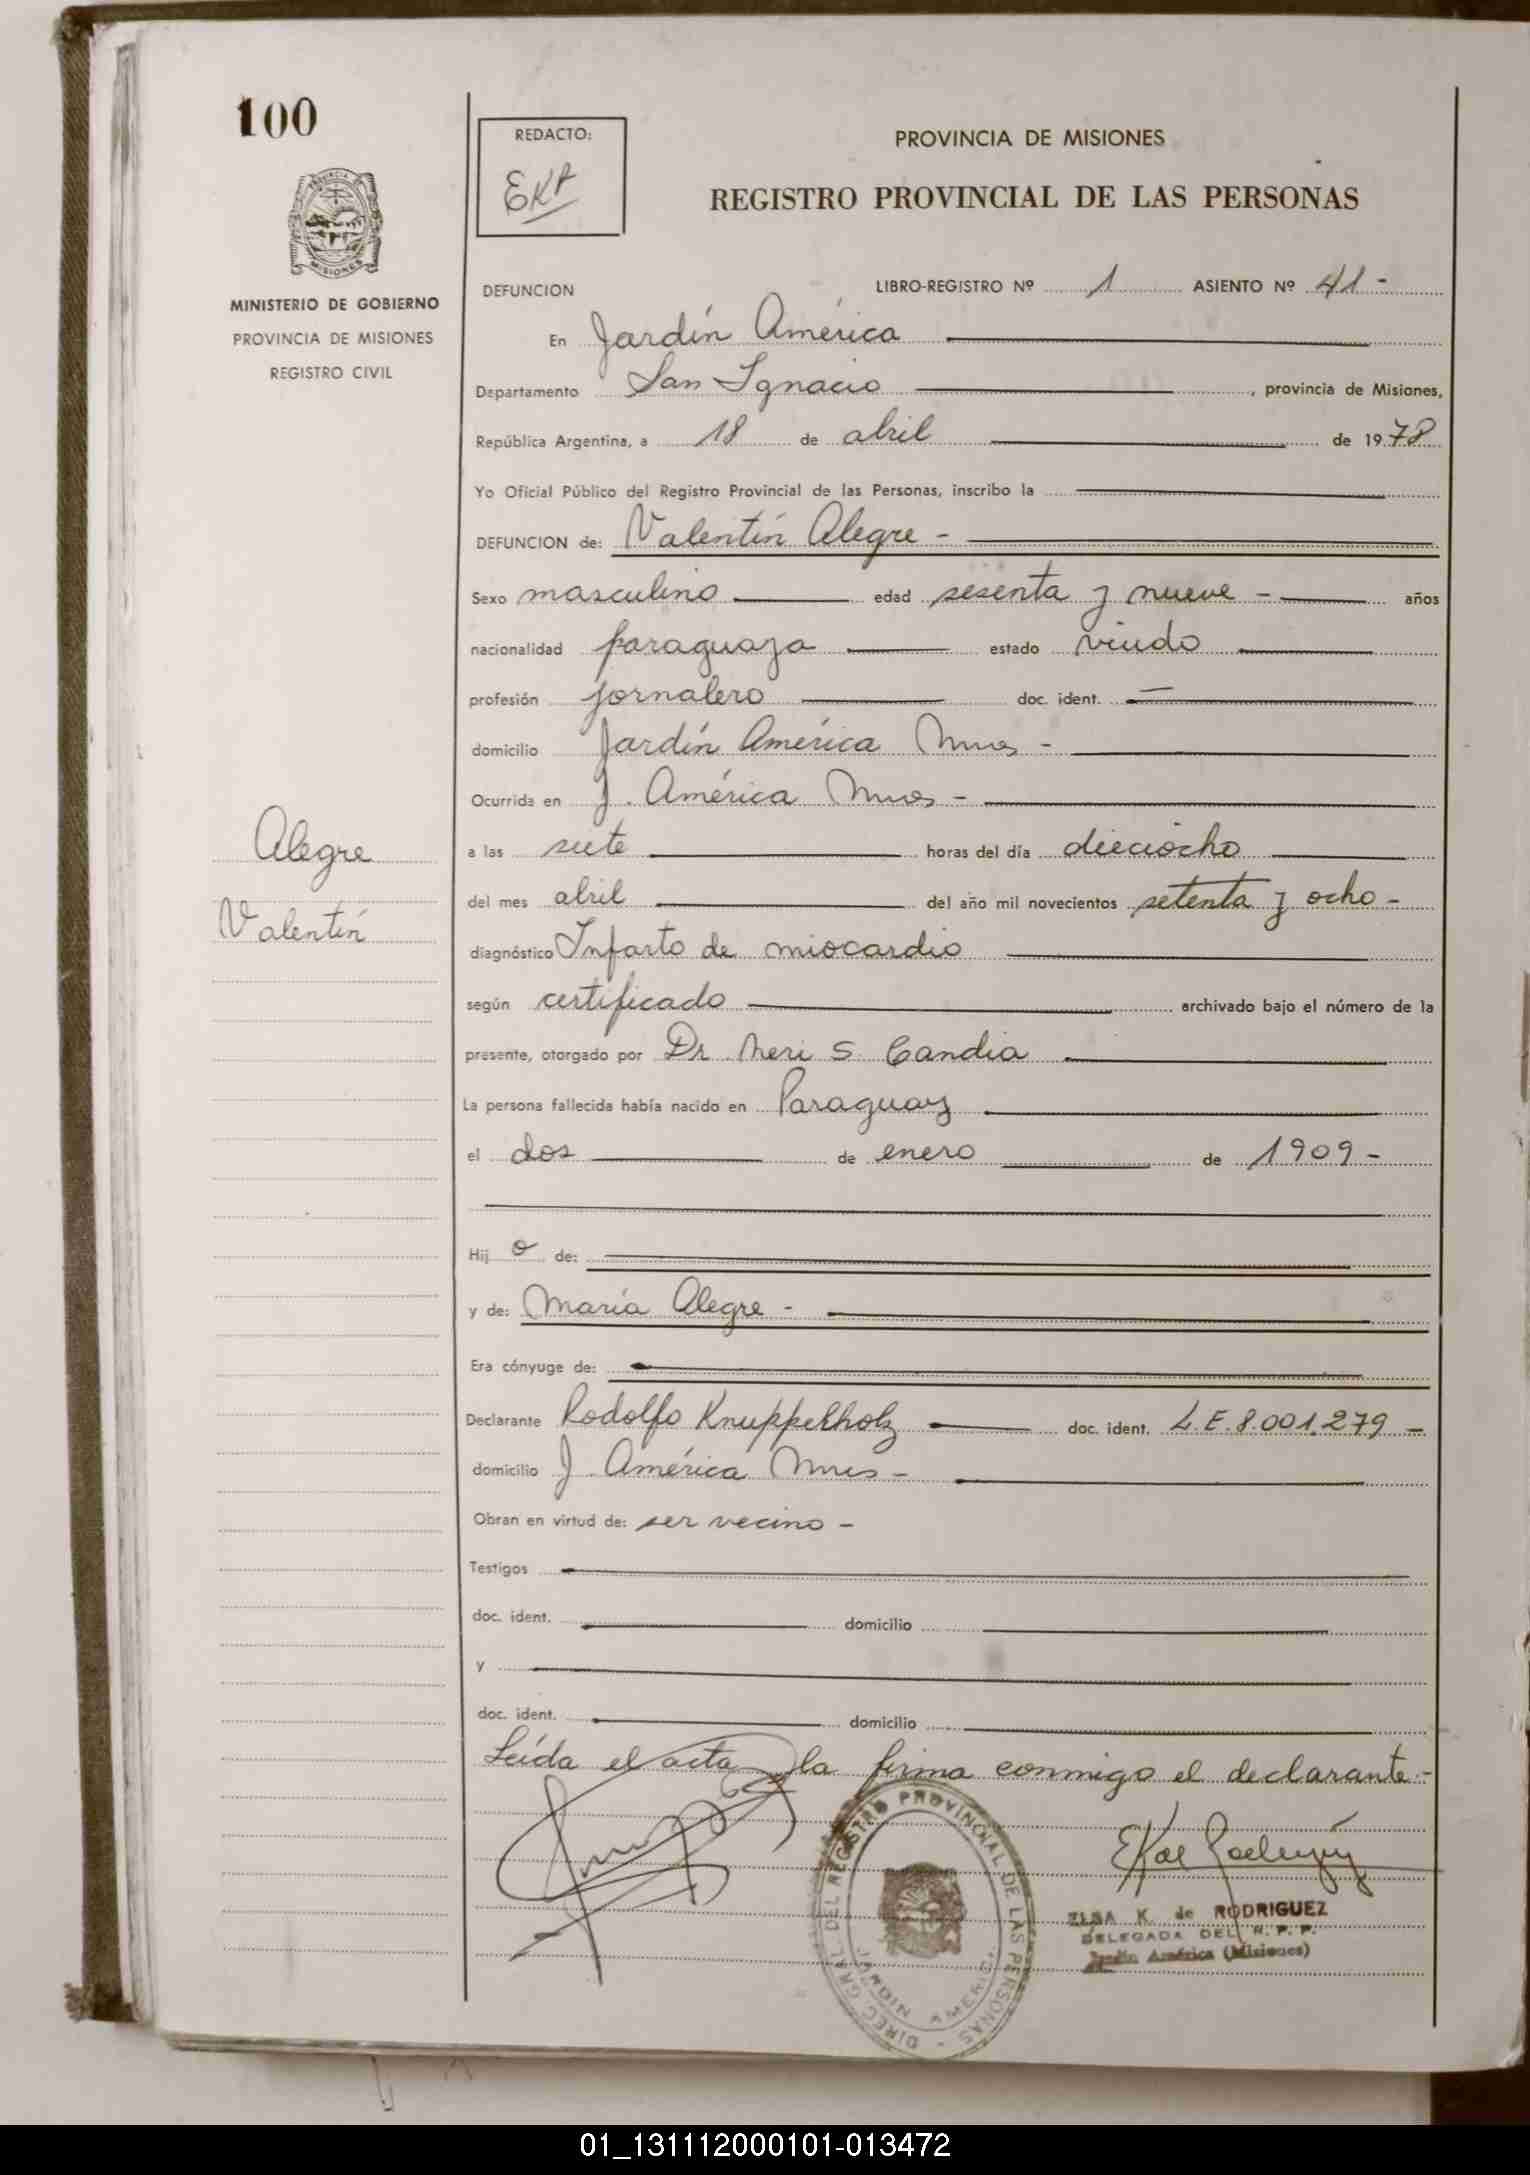 100
REDACTO:
EKA
PROVINCIA DE MISIONES
REGISTRO PROVINCIAL DE LAS PERSONAS
PROVINCIA DE
MISIONES
MINISTERIO DE GOBIERNO
PROVINCIA DE MISIONES
REGISTRO CIVIL
DEFUNCION LIBRO-REGISTRO Nº 1 ASIENTO Nº 41-
En Jardín América
Departamento San Ignacio, provincia de Misiones,
República Argentina, a 18 de abril de 1978
Yo Oficial Público del Registro Provincial de las Personas, inscribo la
DEFUNCION de: Valentín Alegre -
Sexo masculino edad sesenta y nueve - años
nacionalidad paraguaya estado viudo
profesión jornalero doc. ident.
domicilio Jardín América Mnes -
Ocurrida en J. América Mnes -
Alegre
Valentín
a las siete horas del día dieciocho
del mes abril del año mil novecientos setenta y ocho -
diagnóstico Infarto de miocardio
según certificado archivado bajo el número de la
presente, otorgado por Dr. Neri S. Candia
La persona fallecida había nacido en Paraguay
el dos de enero de 1909 -
Hij o de:
y de: María Alegre -
Era cónyuge de:
Declarante Rodolfo Knuppelholz doc. ident. L.E. 8.001.279 -
domicilio J. América Mnes -
Obran en virtud de: ser vecino -
Testigos
doc. ident. domicilio
y
doc. ident. domicilio
Leída el acta la firma conmigo el declarante -
DIREC. GRAL. DEL REGISTRO PROVINCIAL DE LAS PERSONAS -
JARDIN AMERICA
ELSA K. de RODRIGUEZ
DELEGADA DEL R. P. P.
Jardín América (Misiones)
01_131112000101-013472